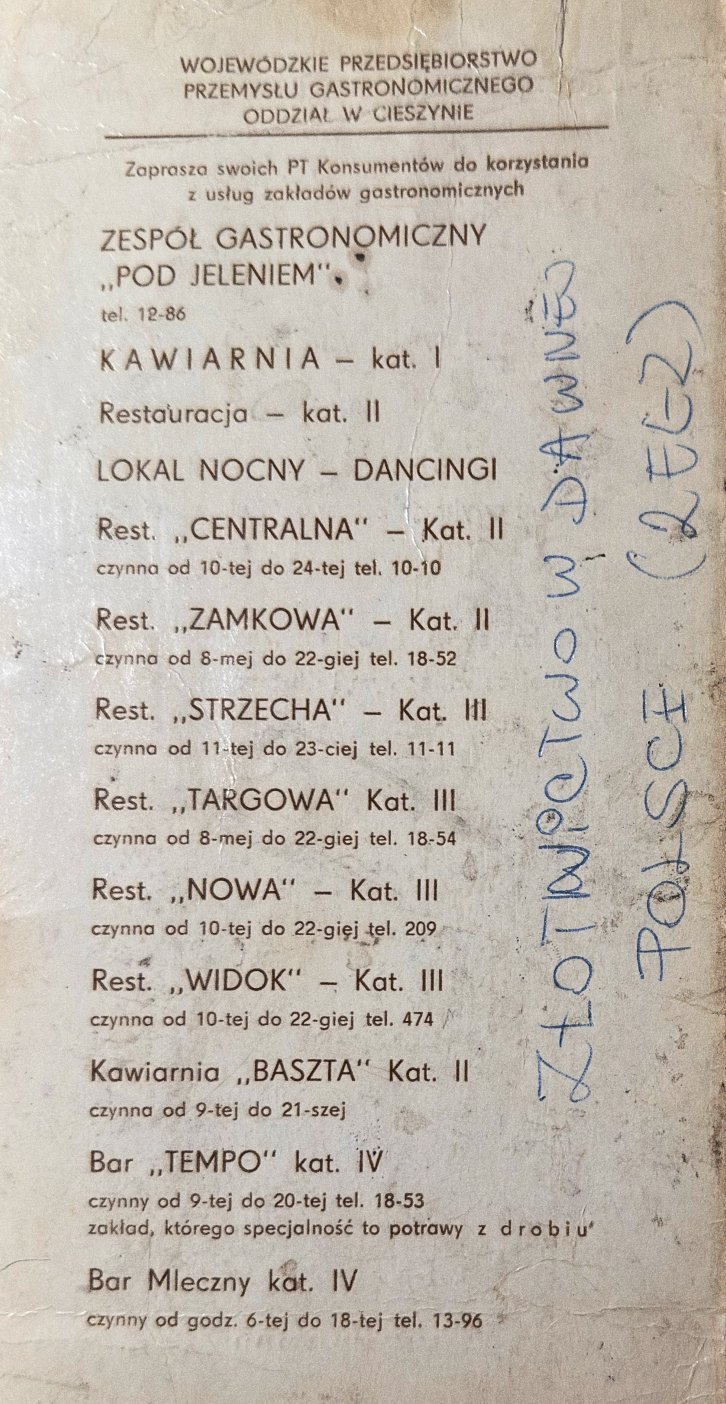 WOJEWÓDZKIE PRZEDSIĘBIORSTWO
PRZEMYSŁU GASTRONOMICZNEGO
ODDZIAŁ W CIESZYNIE
Zaprasza swoich PT Konsumentów do korzystania
z usług zakładów gastronomicznych
ZESPÓŁ GASTRONOMICZNY
„POD JELENIEM".
tel. 12-86
KAWIARNIA – kat. I
Restauracja – kat. II
LOKAL NOCNY – DANCINGI
Rest. „CENTRALNA" – Kat. II
czynna od 10-tej do 24-tej tel. 10-10
Rest. „ZAMKOWA" – Kat. II
czynna od 8-mej do 22-giej tel. 18-52
Rest. „STRZECHA" – Kat. III
czynna od 11-tej do 23-ciej tel. 11-11
Rest. „TARGOWA" Kat. III
czynna od 8-mej do 22-giej tel. 18-54
Rest. „NOWA" – Kat. III
czynna od 10-tej do 22-giej tel. 209
Rest. „WIDOK" – Kat. III
czynna od 10-tej do 22-giej tel. 474
Kawiarnia „BASZTA" Kat. II
czynna od 9-tej do 21-szej
Bar „TEMPO" kat. IV
czynny od 9-tej do 20-tej tel. 18-53
zakład, którego specjalność to potrawy z drobiu"
Bar Mleczny kat. IV
czynny od godz. 6-tej do 18-tej tel. 13-96
ZŁOTNICTWO W DAWNEJ
POLSCE